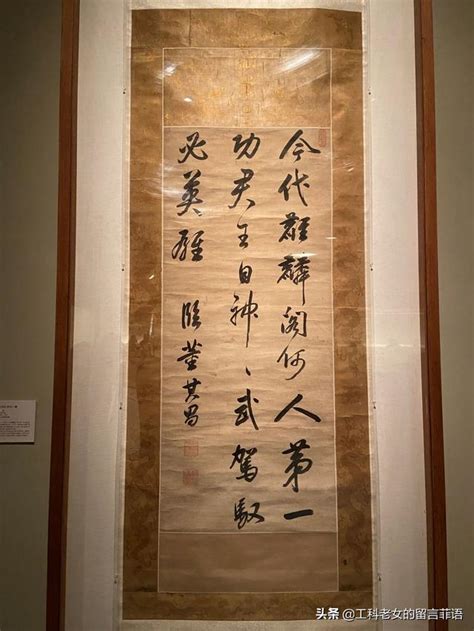 今代麒麟閣何人第一
功君王自神、武駕馭
必英雄 臨董其昌
头条 @工科老女的留言菲语